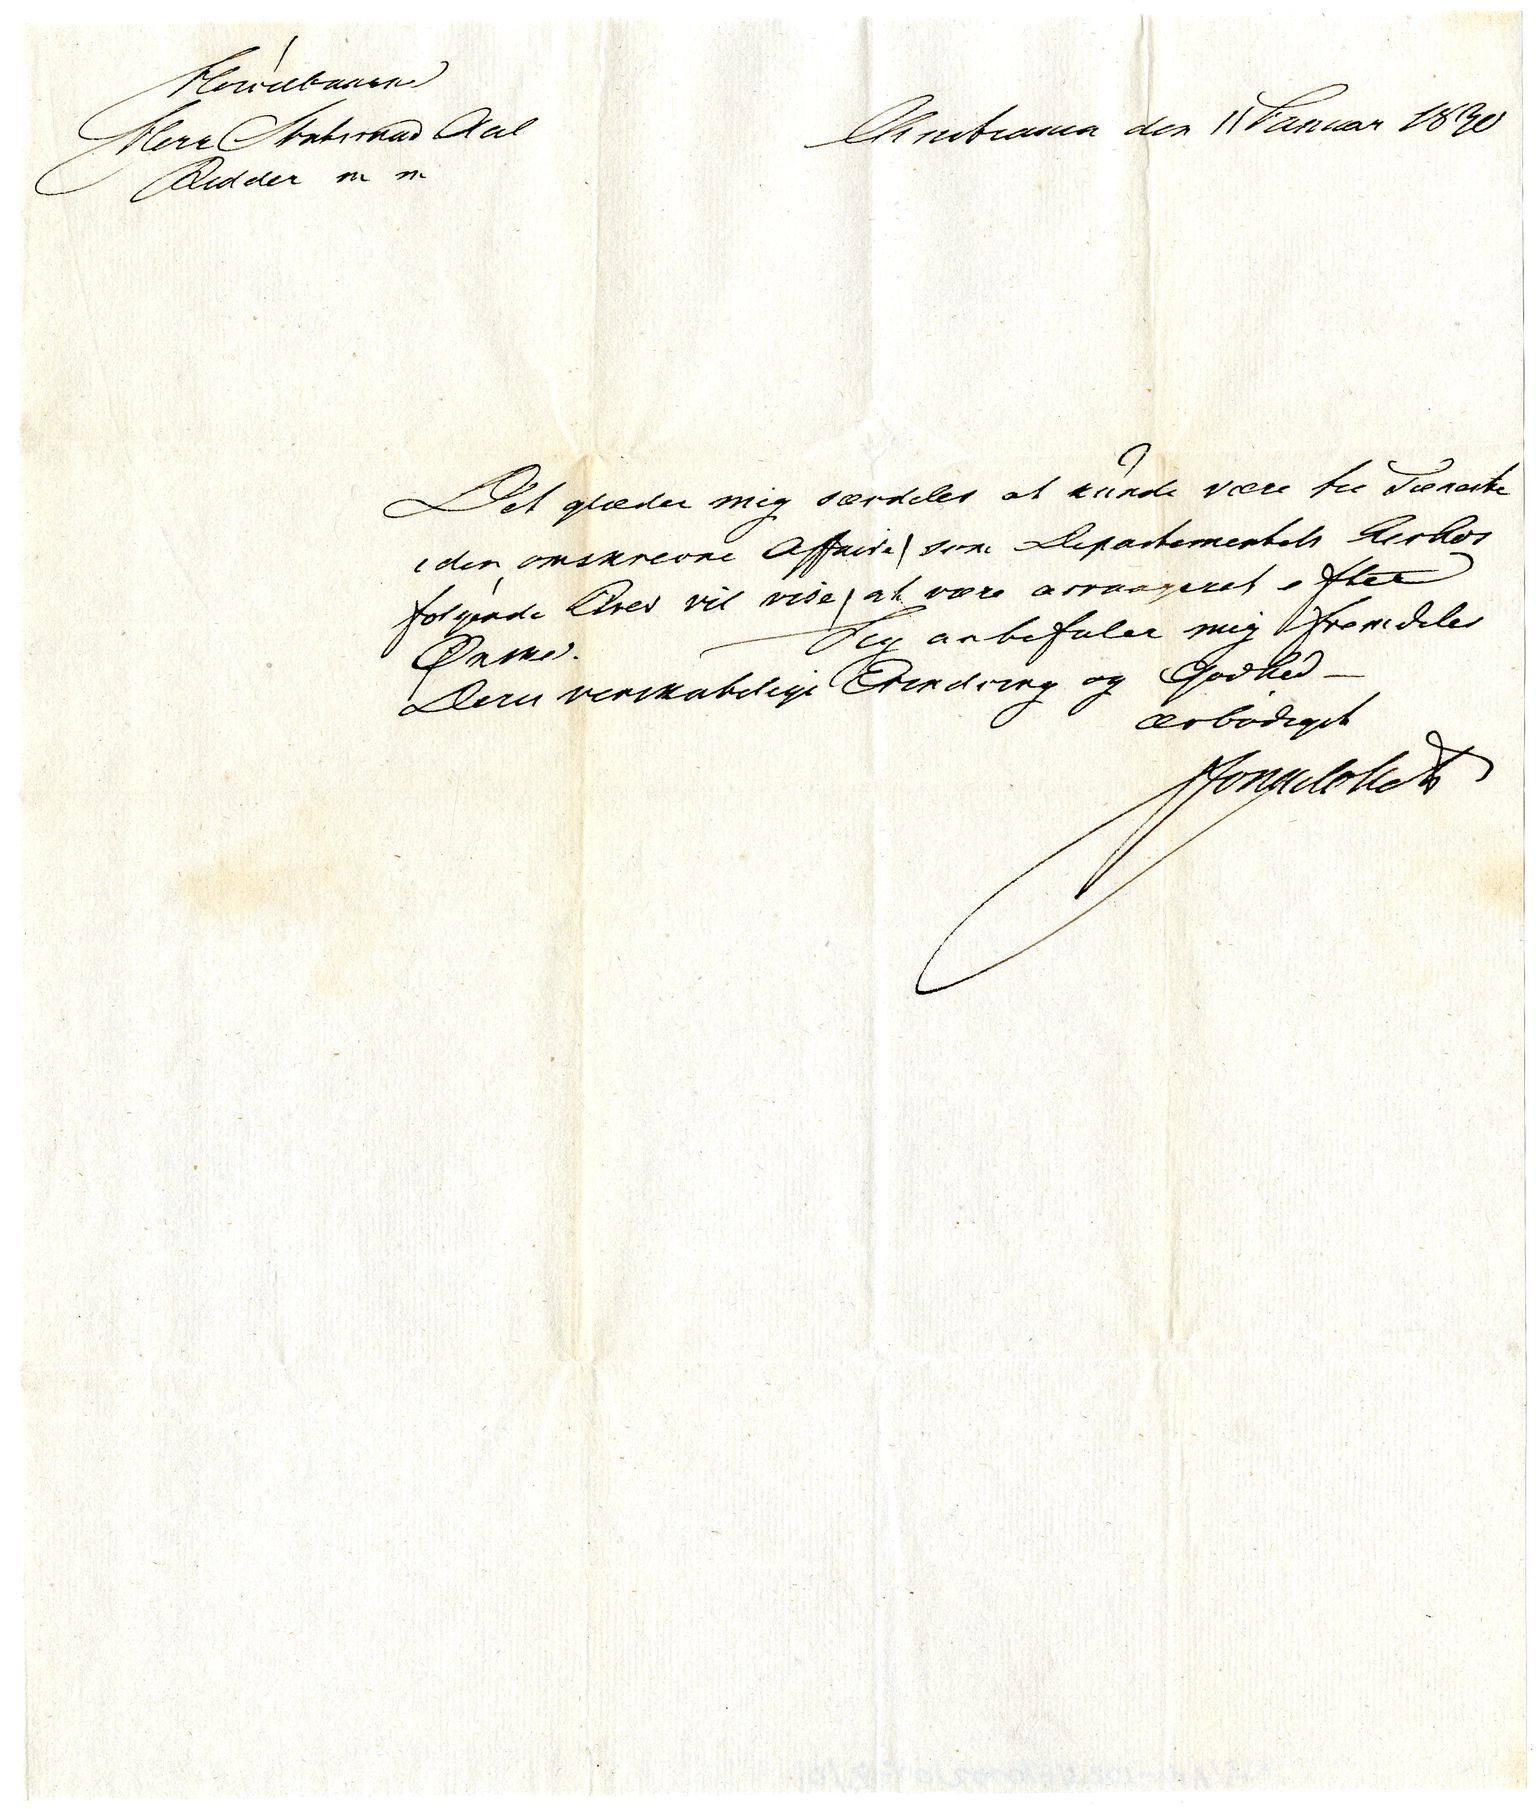 Høivelbaarne
Herr Statsraad Aal
Ridder m m
Christiania den 11 Januar 1830
Det glæder mig særdeles at kunde være til Tieneste
i den omskrevne Affaire / som Departementets herhos
følgende Brev vil vise / at være arrangeret efter
Ønske. Jeg anbefaler mig fremdeles
Deres venskabelige Erindring og Godhed —
ærbødigst